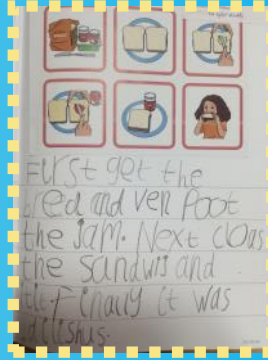 First get the
bred and ven Poot
the Jam. Next cloas
the sandwis and
Finally it was